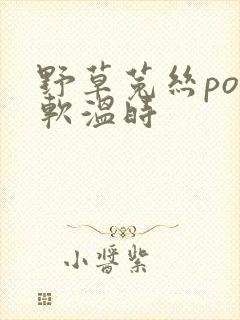 野草菟丝po
软温时
小酱紫